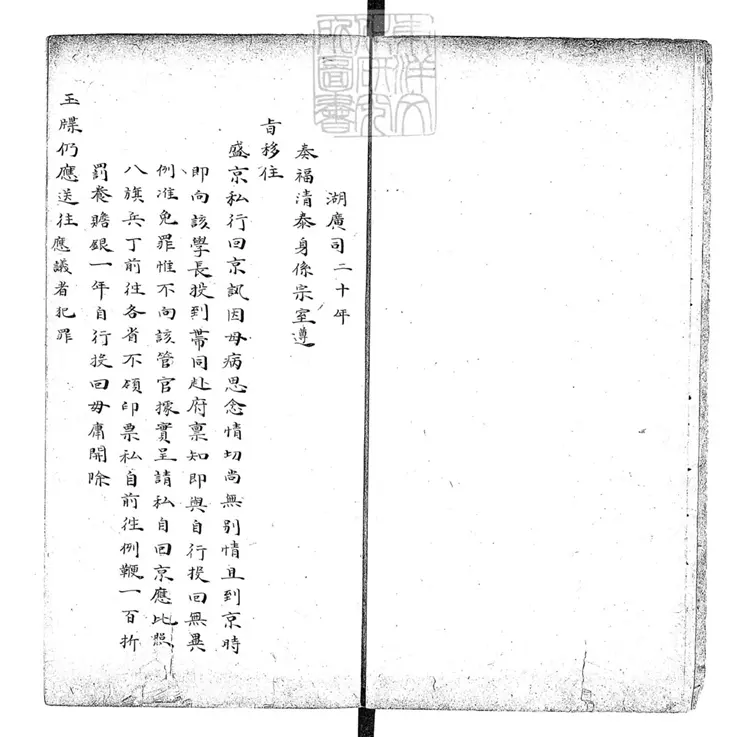 東洋文
化研究
所圖書
湖廣司二十年
奏福清泰身係宗室遵
旨移住
盛京私行回京訊因母病思念情切尚無別情且到京時
即向該學長投到帶同赴府稟知即與自行投回無異
例准免罪惟不向該管官據實呈請私自回京應比照
八旗兵丁前徃各省不領印票私自前徃例鞭一百折
罰養贍銀一年自行投回毋庸開除
玉牒仍應送往應議者犯罪